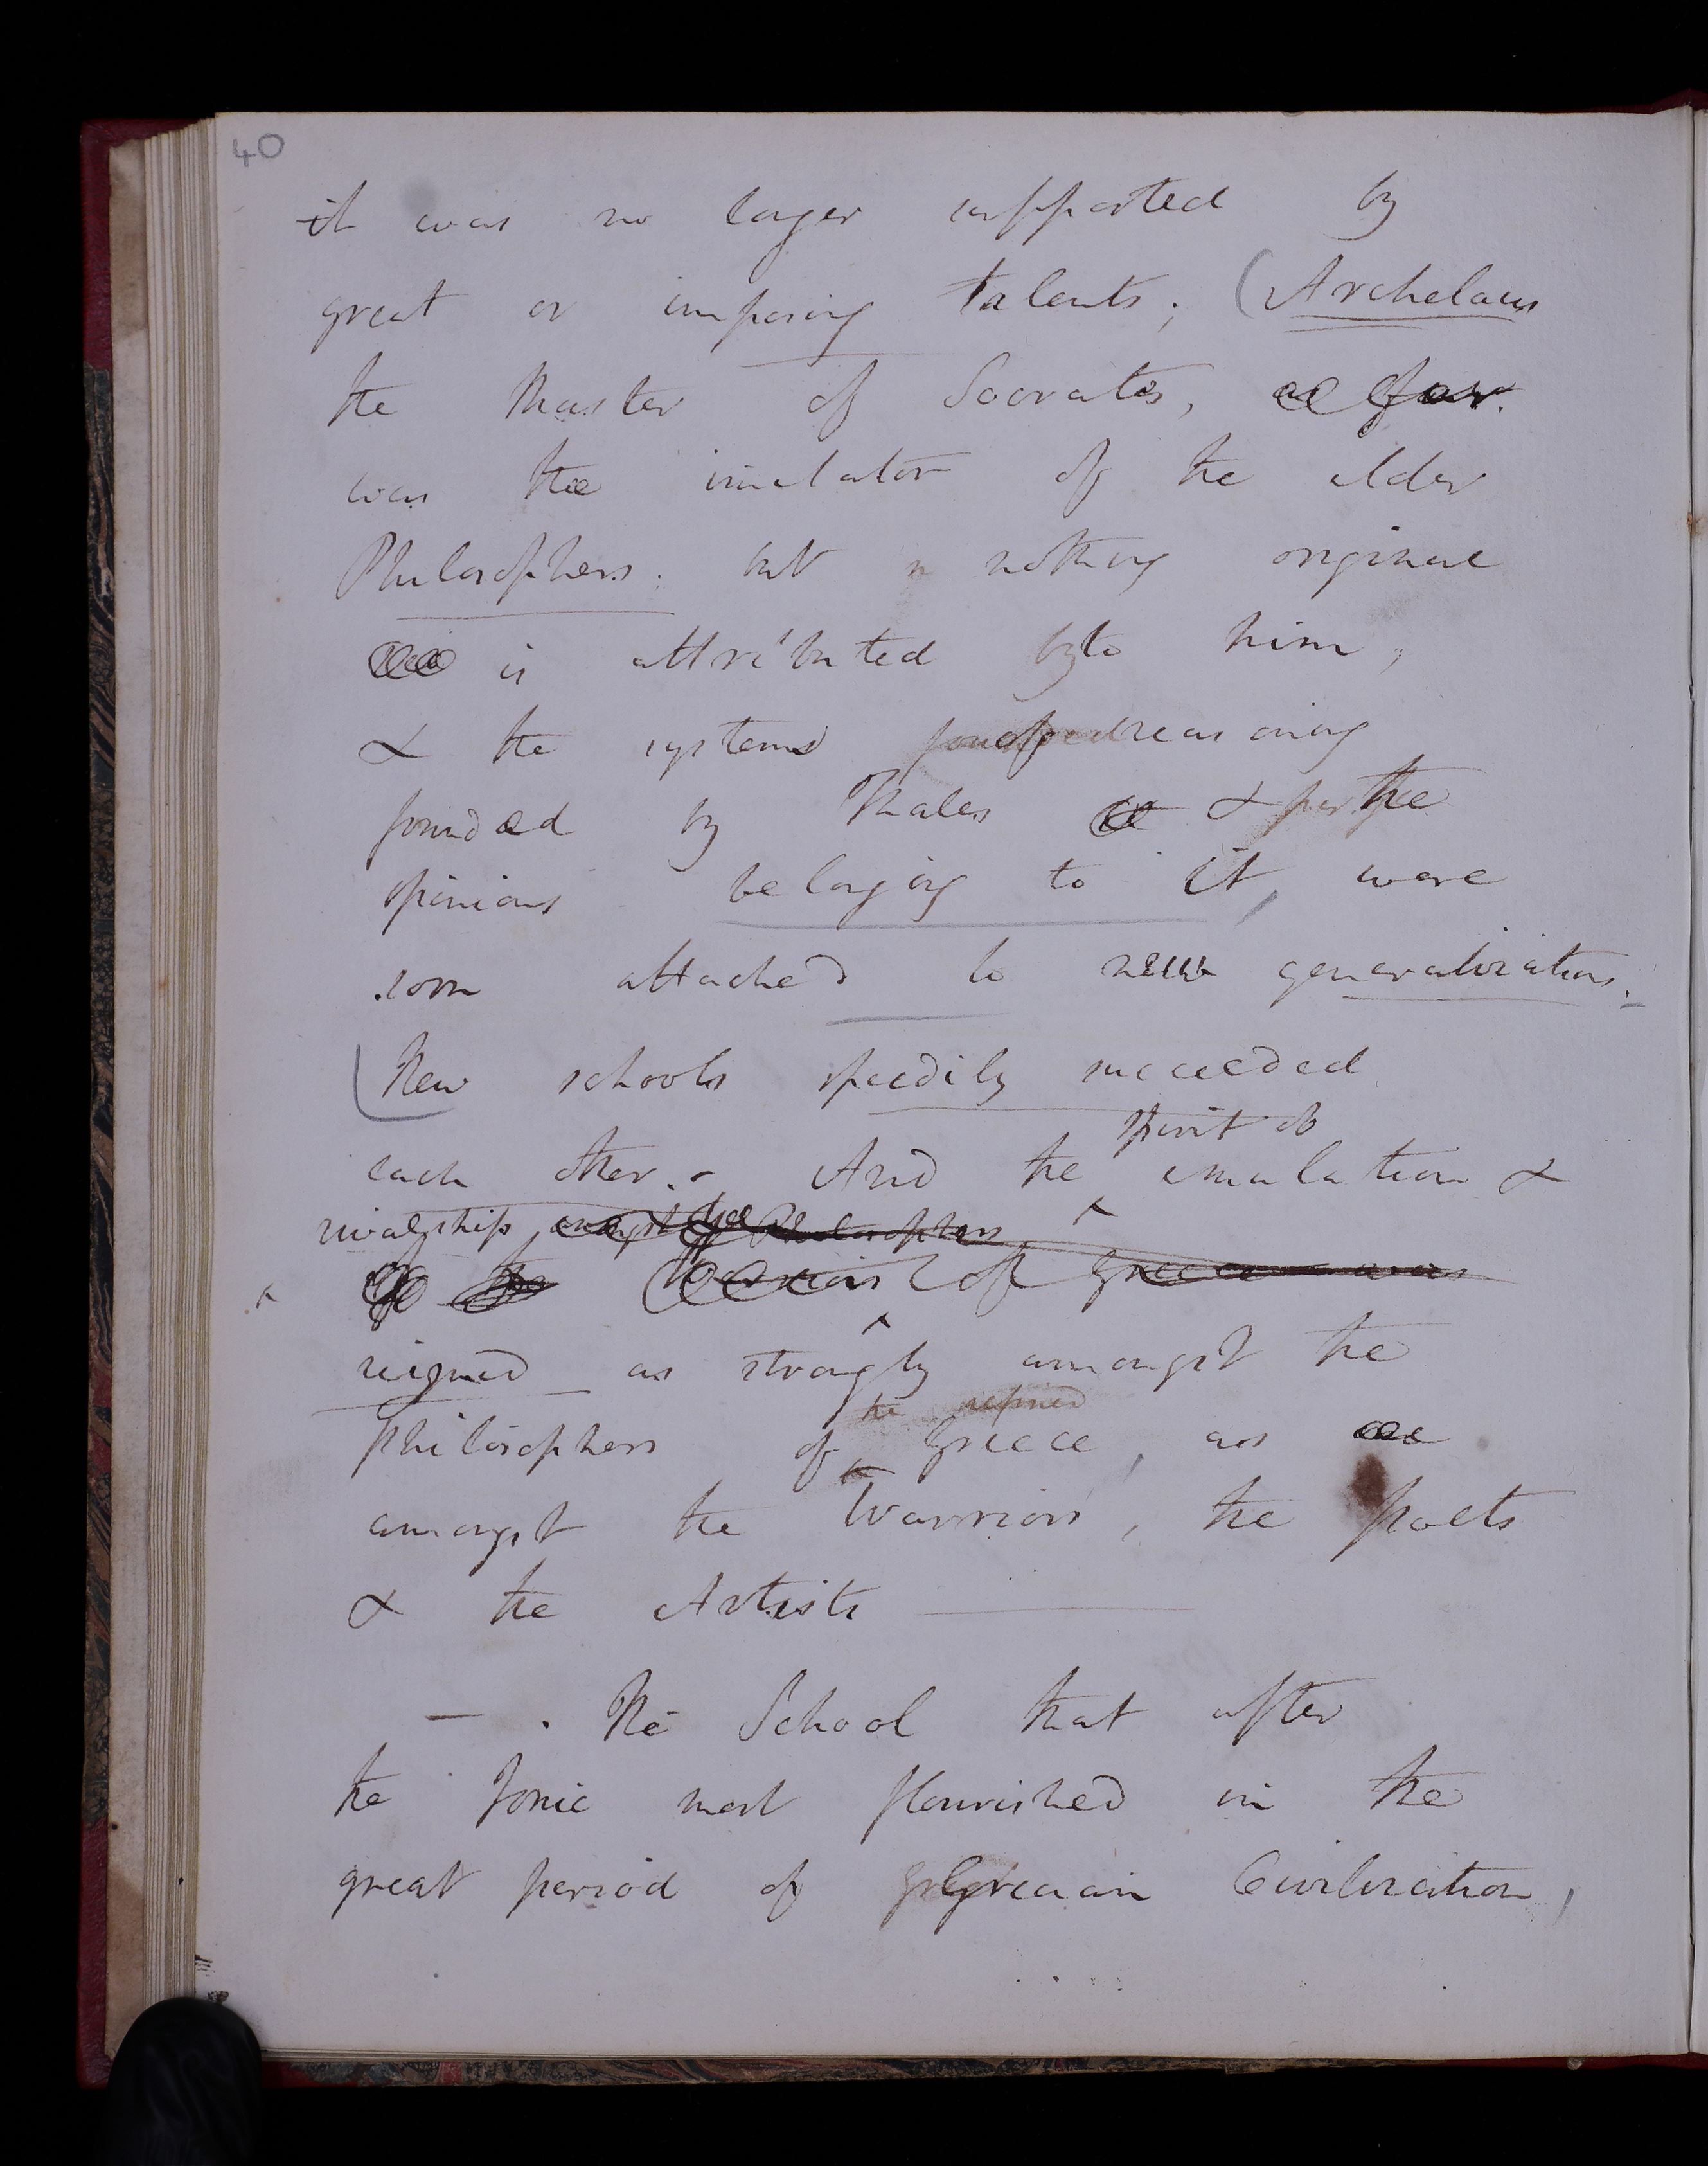 40
it was no longer supported by
great or imposing talents; (Archelaus
the Master of Socrates,
was the imitator of the elder
Philosophers. but nothing original
is attributed by to him,
& the systems of reasoning
founded by Thales & the
opinions belonging to it, were
soon attached to new generalizations.
New schools speedily succeeded
spirit of
each other. - And the emulation &
rivalship amongst the Philosophers
of the Warriors of Greece was
reigned as strongly amongst the
the refined
philosophers of Greece, as
amongst the Warriors, the poets
& the Artists
- . The School that after
the Ionic most flourished in the
great period of Grecian Civilization,